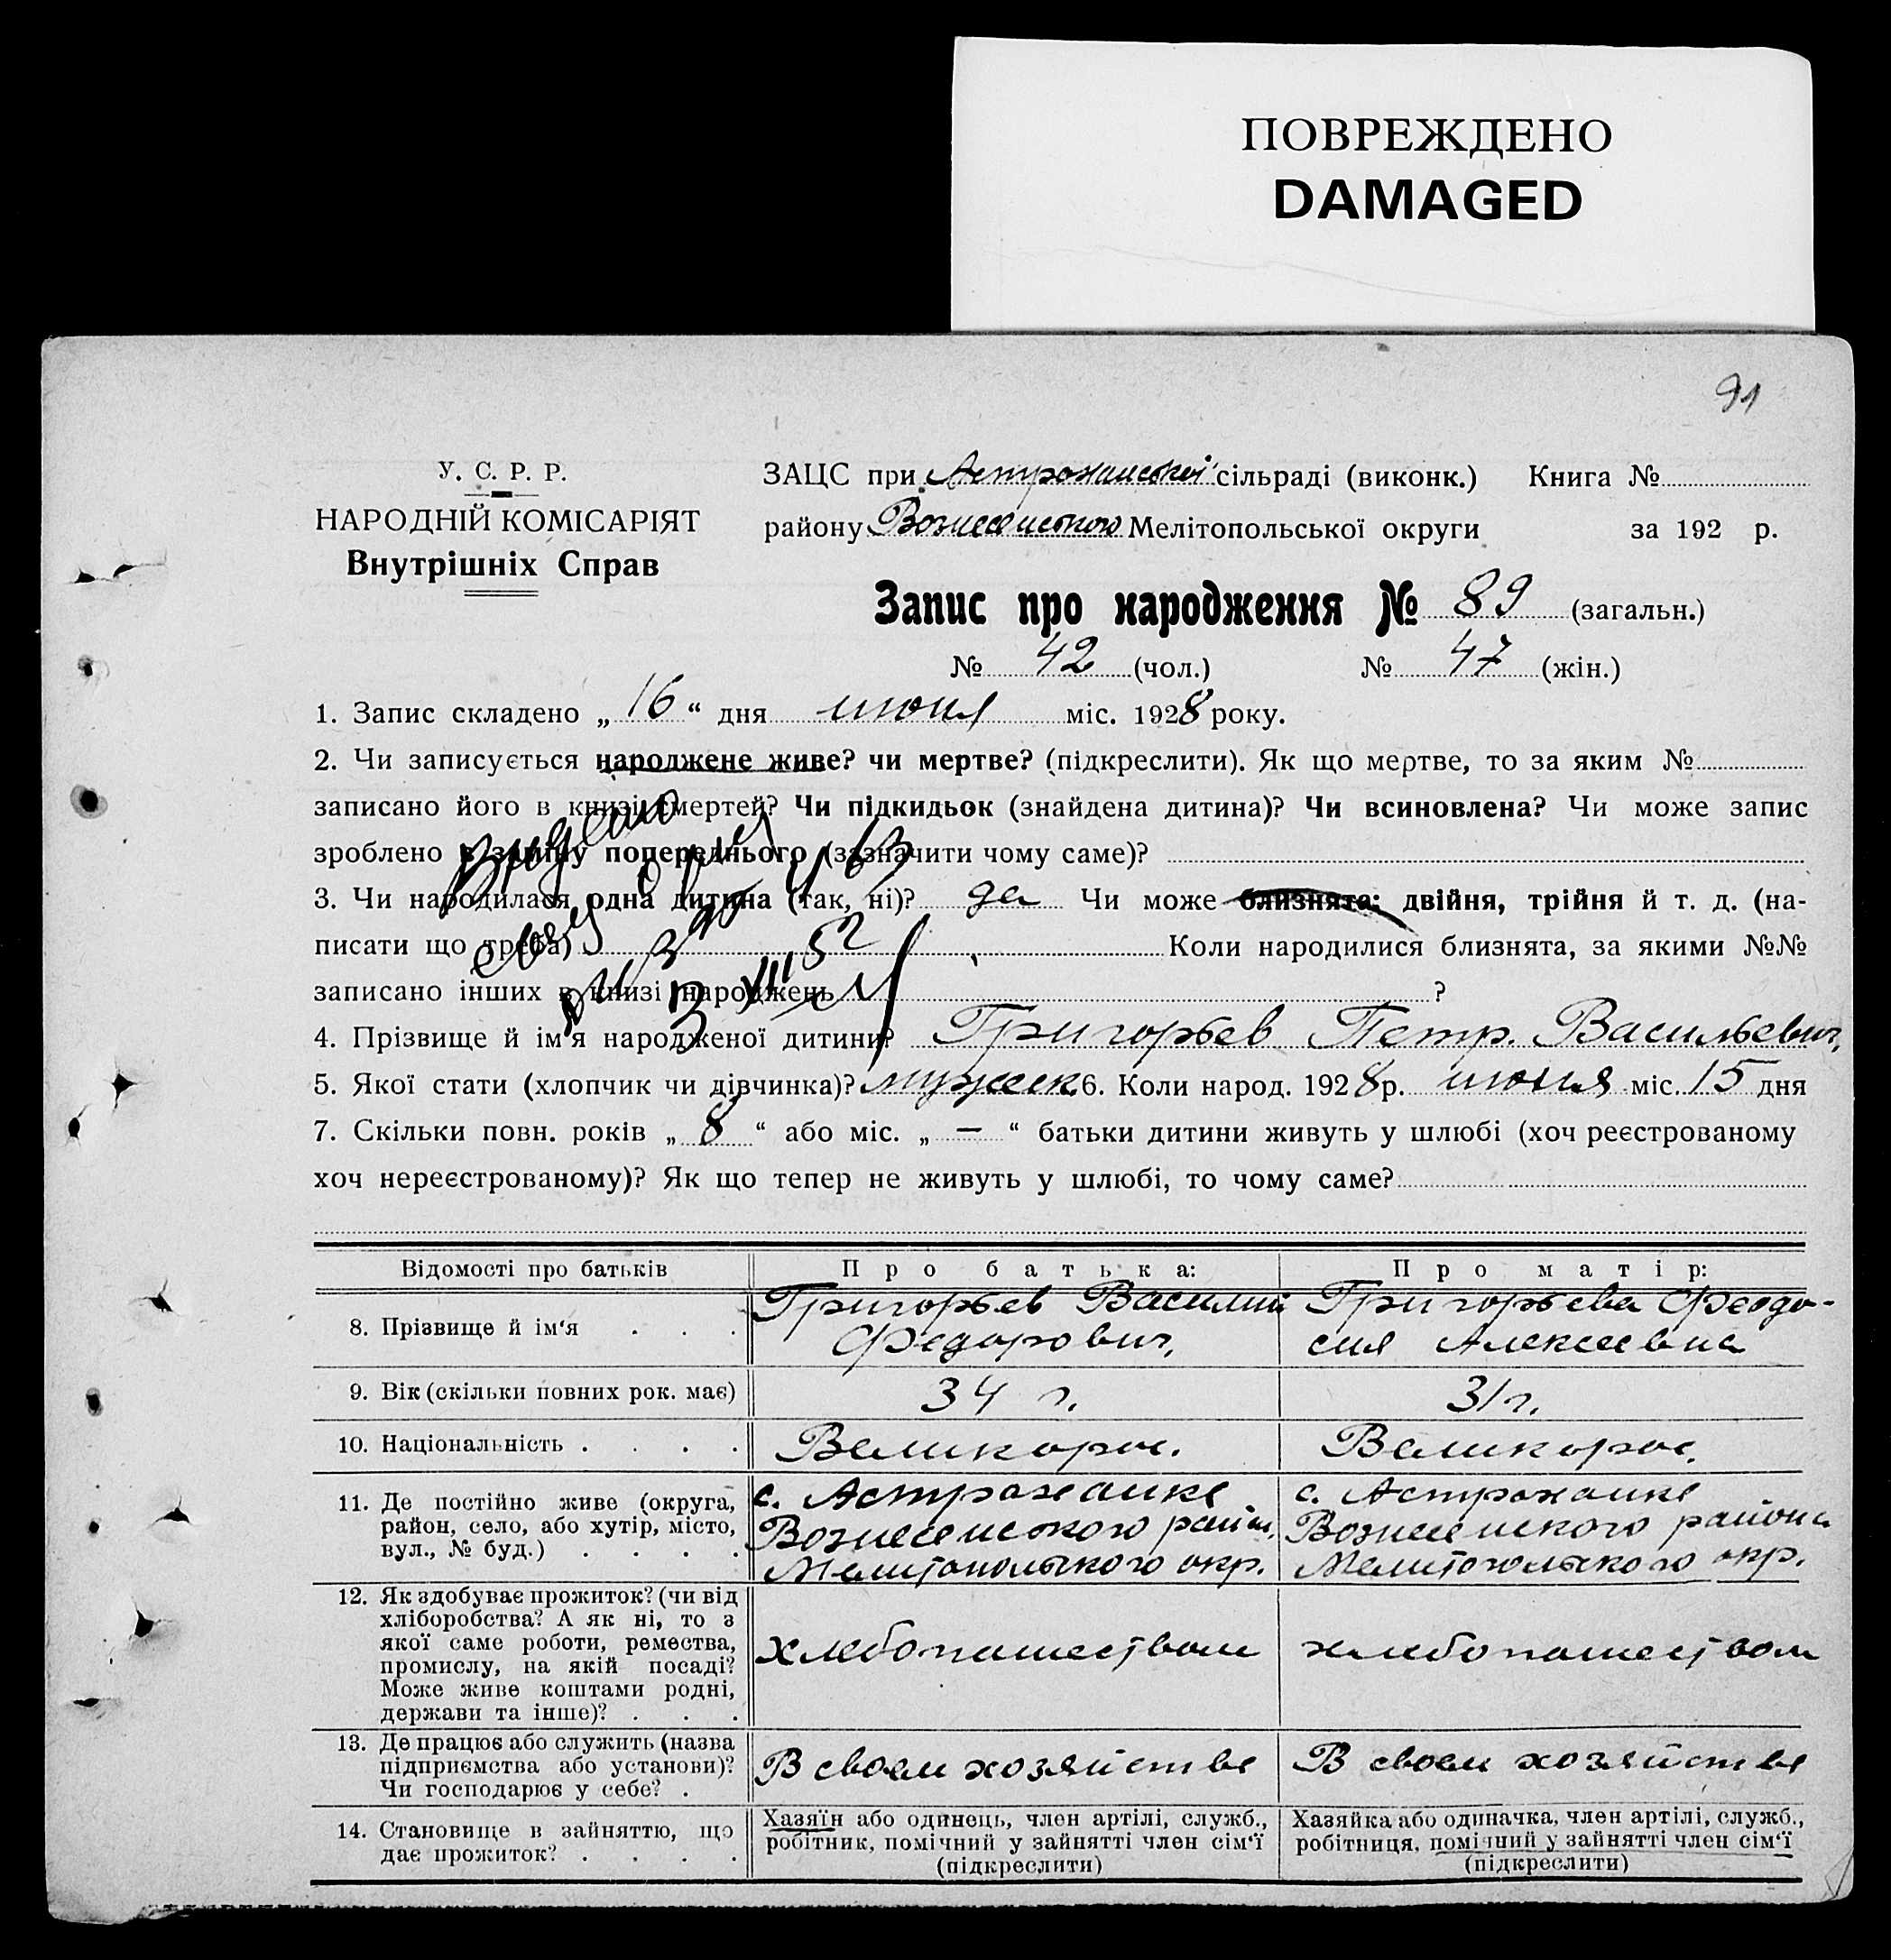 ПОВРЕЖДЕНО
DAMAGED
91
У. С. Р. Р.
НАРОДНІЙ КОМІСАРІЯТ
Внутрішніх Справ
ЗАЦС при Астроханської сільраді (виконк.) Книга №
району Вознесенського Мелітопольської округи за 192 р.
Запис про народження № 89 (загальн.)
№ 42 (чол.) № 47 (жін.)
1. Запис складено „ 16 “ дня июня міс. 1928 року.
2. Чи записується народжене живе? чи мертве? (підкреслити). Як що мертве, то за яким №
записано його в книзі смертей? Чи підкидьок (знайдена дитина)? Чи всиновлена? Чи може запис
зроблено в заміну попереднього (зазначити чому саме)?
3. Чи народилася одна дитина (так, ні)? да Чи може близнята: двійня, трійня й т. д. (на-
писати що треба) Коли народилися близнята, за якими №№
записано інших в книзі народжень ?
4. Прізвище й ім'я народженої дитини? Григорьев Петр. Васильевич.
5. Якої стати (хлопчик чи дівчинка)? мужск. 6. Коли народ. 1928 р. июня міс. 15 дня
7. Скільки повн. років „ 8 “ або міс. „ — “ батьки дитини живуть у шлюбі (хоч реєстрованому
хоч нереєстрованому)? Як що тепер не живуть у шлюбі, то чому саме?
Відомості про батьків
Про батька:
Про матір:
8. Прізвище й ім'я . . .
Григорьев Василий
Федорович.
Григорьева Феодо-
сия Алексеевна
9. Вік (скільки повних рок. має)
34 г.
31 г.
10. Національність . . . .
Великорос.
Великорос.
11. Де постійно живе (округа,
район, село, або хутір, місто,
вул., № буд.) . . . .
с. Астроханке
Вознесенского район.
Мелитопольского окр.
с. Астроханке
Вознесенского района
Мелитопольского окр.
12. Як здобуває прожиток? (чи від
хліборобства? А як ні, то з
якої саме роботи, ремества,
промислу, на якій посаді?
Може живе коштами родні,
держави та інше)? . . .
хлебопашеством
хлебопашеством
13. Де працює або служить (назва
підприємства або установи)?
Чи господарює у себе? .
В своем хозяйстве
В своем хозяйстве
14. Становище в зайняттю, що
дає прожиток? . . . .
Хазяїн або одинець, член артілі, служб.,
робітник, помічний у зайнятті член сім'ї
(підкреслити)
Хазяйка або одиначка, член артілі, служб.,
робітниця, помічний у зайнятті член сім'ї
(підкреслити)